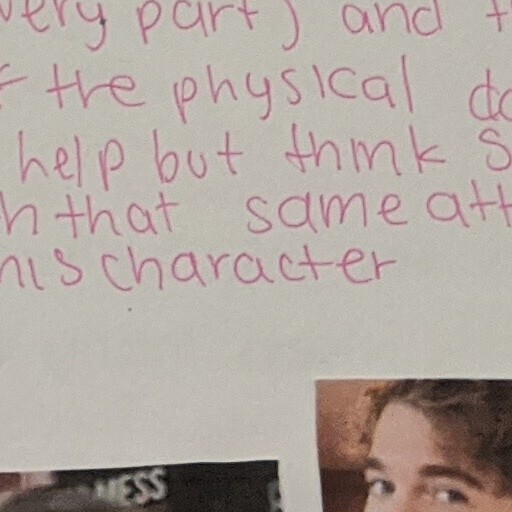 very part) and t
f the physical do
help but think s
h that same att
his character
NESS